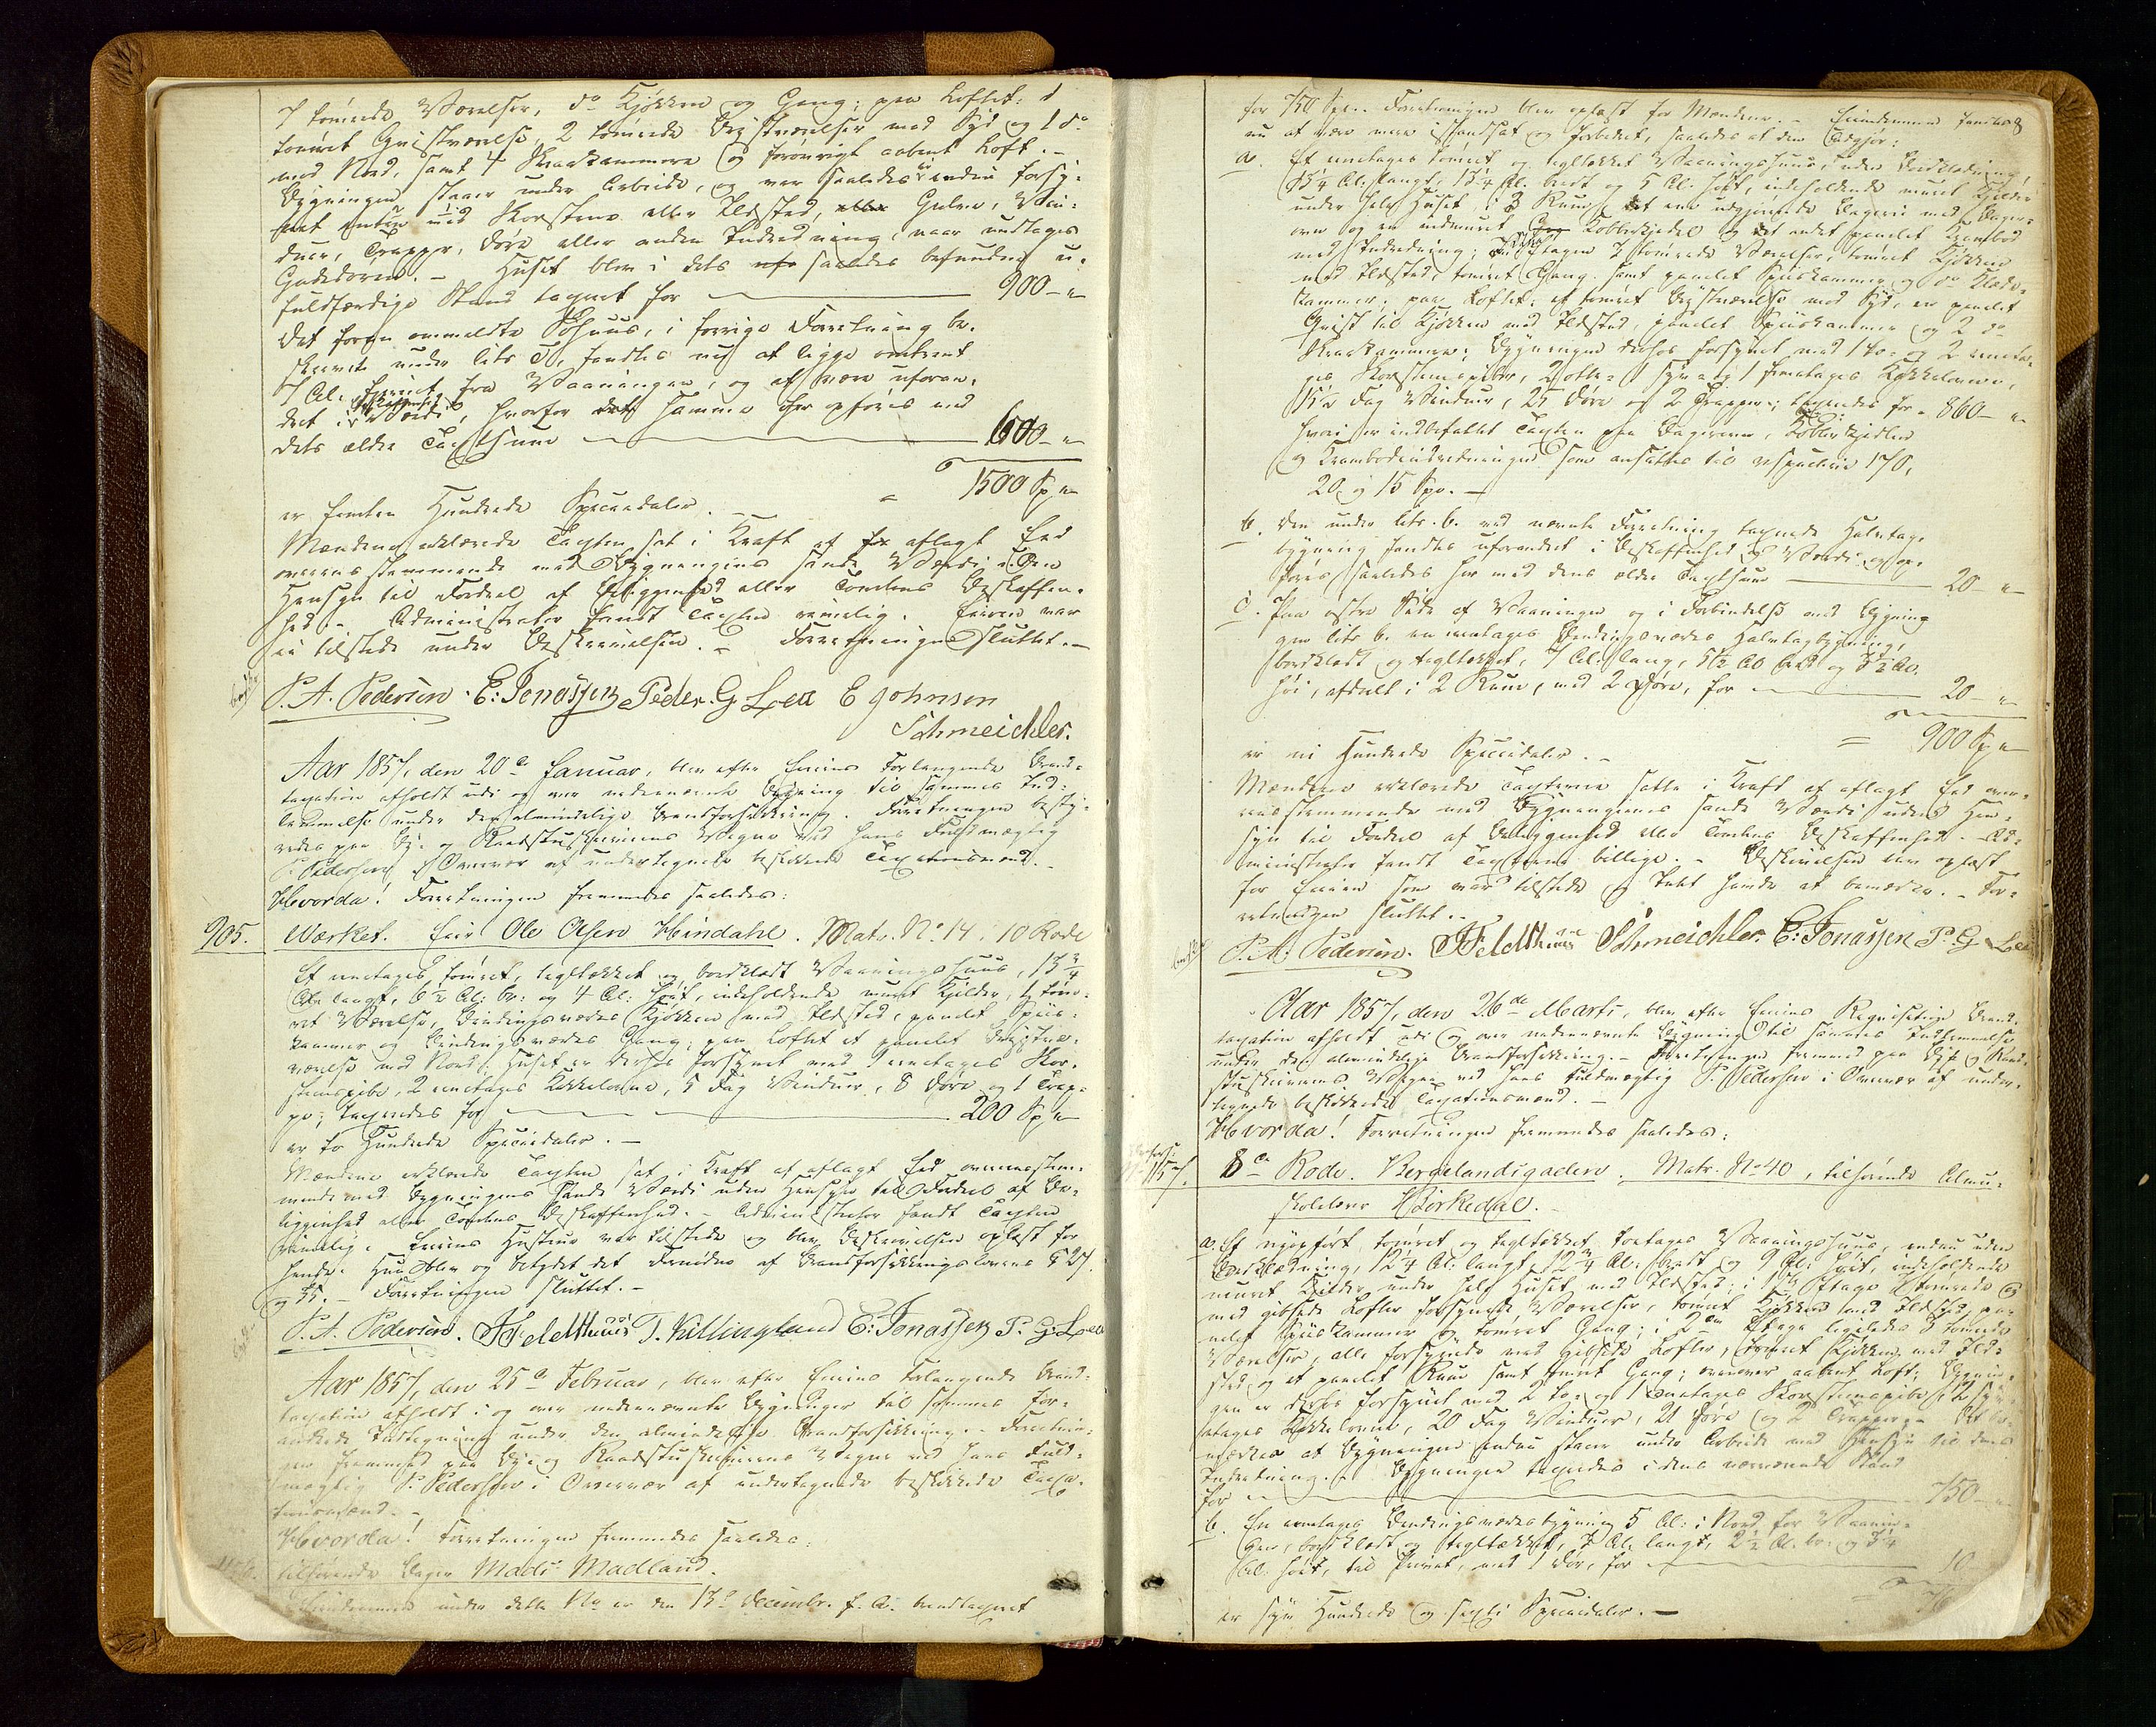 7 tømrede Værelser, do Kjøkken og Gang; paa Loftet: 1
tømret Qvistværelse, 2 tømrede Brystværelser med Syd og 1 do
med Nord, samt 4 Skraakammere og forøvrigt aabent Loft. –
Bygningen staaer under Arbeide, og var saaledes ei endnu forsy-
net enten med Skorstene eller Ildsted, eller Gulve, Vin-
duer, Trapper, Døre eller anden Indredning, naar undtages
Gadedøren. – Huset blev i dets saaledes befundne u-
fuldfærdige Stand taxeret for 900 – "
Det foran ommeldte Søhuus, i forrige Forretning be-
skrevet under litr , fandtes nu at ligge omtrent
7 Al. fjernet fra Vaaningen, og at være uforan-
dret i Beskaffenhed Værdi, hvorfor det samme her opføres med
dets ældre Taxtsum 600 – "
1500 Sp "
er femten Hundrede Speciedaler. –
Mændene erklærede Taxten sat i Kraft af aflagt Eed
overensstemmende med Bygningens sande Værdi uden
Hensyn til Fordeel af Beliggenhed eller Tomtens Beskaffen-
hed. – Administrator fandt Taxten rimelig. Eieren var
ei tilstede under Beskrivelsen. – Forretningen sluttet. –
P. A. Pedersen. E: Jonassen Peder. G. Lea E Johnsen
Schmeichler.
Aar 1857, den 20de Januar, blev efter Eierens Forlangende Brand-
taxation afholdt udi og over nedennævnte Bygning til sammes Ind-
lemmelse under den almindelige Brandforsikkring. Forretningen besty-
redes paa By- og Raadstueskriverens Vegne ved hans Fuldmægtig
P. Pedersen i Overvær af undertegnede beskikkede Taxationsmænd. –
Hvorda! Forretningen fremmedes saaledes:
905. Værket. Eier Ole Olsen Hindahl. Matr. No 14. 10 Rode
Et eenetages tømret, teglteækket og bordklædt Vaaningshuus, 13 3/4
Al. langt, 6 1/2 Al: br: og 4 Al: høit, indeholdende muret Kjelder, 1 tøm-
ret Værelse, Bindingsværkes Kjøkken med Ildsted, panelet Spiis-
kammer og Bindingsværkes Gang; paa Loftet et panelet Bryst-
værelse med Nord; Huset er derhos forsynet med 1 eenetages Skor-
steenspibe, 2 eenetages Kakkelovne, 5 Fag Vinduer, 8 Døre og 1 Trap-
pe; taxeredes for 200 Sp "
er to Hundrede Speciedaler. –
Mændene erklærede Taxten sat i Kraft af aflagt Eed overeensstem-
mende med Bygningens sande Værdi uden Hensyn til Fordeel af Be-
liggenhed eller Tomtens Beskaffenhed. – Administrator fandt Taxten
rimelig. Eierens Hustrue var tilstede og blev Beskrivelsen oplæst for
hende. Hun blev og betydet det Fornødne af Brandforsikkringslovens § 27
og 35. – Forretningen sluttet. –
P. A. Pedersen. Feldthuus T. Killingland E: Jonassen P. G. Lea
Aar 1857, den 25de Februar, blev efter Eierens Forlangende Brand-
taxation afholdt i og over nedennævnte Bygninger til sammes for-
andrede Indtegning under den almindelige Brandforsikkring. – Forretnin-
gen fremmed paa By- og Raadstueskriverens Vegne ved hans Fuld-
mægtig P. Pedersen i Overvær af undertegnede beskikkede Taxa-
tionsmænd. –
Hvorda! Forretningen fremmedes saaledes:
tilhørende Bager Mads Madland.
Eiendommen under dette No er den 13de Decembr. f. A. brandtaxeret
for 750 Spd. Forretningen blev oplæst for Mændene. – Eiendommen fandtes
nu at være mere istandsat og forbedret, saaledes at den Udgjør:
a. Et eenetages tømret og tegltækket Vaaningshuus, uden Bordklædning,
15 1/4 Al. langt, 13 1/4 Al. bredt og 5 Al. høit, indeholdende muret Kjelder
under hele Huset, i 3 Rum, det ene udgjørende Bageri med Bager-
ovn og en indmuret Kobberkjedel og det andet panelet Krambod
med Indredning; i Etagen 7 tømrede Værelser, tømret Kjøkken
med Ildsted, tømret Gang samt panelet Spiiskammer og do Klæde-
kammer; paa Loftet: et tømret Brystværelse mod Syd, en panelet
Qvist til Kjøkken med Ildsted, panelet Spiiskammer og 2 do
Skraakammere; Bygningen derhos forsynet med 1 to- og 2 eeneta-
ges Skorsteenspiber, 2 otte- 1 syv- og 1 fireetages Kakkelovne,
15 1/2 Fag Vinduer, 25 Døre og 2 Trapper; taxeredes for – 860 – "
hvori er indbefattet Taxten paa Bagerovn, Kobberkjedlen
og Krambodindredningen som ansattes til respective 170,
20 og 15 Spd. –
b. Den under litr. b. ved nævnte Forretning taxerede Halvtags-
bygning fandtes uforandret i Beskaffenhed og Værdi og op-
føres saaledes her med dens ældre Taxtsum 20 – "
c. Paa østre Side af Vaaningen og i Forbindelse med Bygning
gen litr b. en eenetages Bindingsværkes Halvtagsbygning,
bordklædt og tegltækket, 7 Al. lang, 5 1/2 Al. br. og 3 1/2 Al.
høi, afdeelt i 2 Rum, med 2 Døre, for 20 – "
= 900 Sp "
er ni Hundrede Speciedaler. –
Mændene erklærede Taxterne satte i Kraft af aflagt Eed over-
eensstemmende med Bygningernes sande Værdi uden Hen-
syn til Fordeel af Beliggenhed eller Tomtens Beskaffenhed. – Ad-
ministrator fandt Taxterne billige. – Beskrivelsen blev oplæst
for Eieren som var tilstede og Intet havde at bemærke. – For-
retningen sluttet. –
P. A. Pedersen. Feldthuus Schmeichler. E: Jonassen P. G. Lea
Aar 1857, den 26de Marts, blev efter Eierens Requisition Brand-
taxation afholdt udi og over nedennævnte Bygninger til sammes Indlemmelse
under den almindelige Brandforsikkring. – Forretningen fremmed paa By- og Raad-
stueskriverens Vegne ved hans Fuldmægtig P. Pedersen i Overvær af under-
tegnede beskikkede Taxationsmænd. –
Hvorda! Forretningen fremmedes saaledes:
8de Rode. Bergelandsgaden. Matr. No 40, tilhørende Almu-
skolelærer Birkedal. –
a. Et nyopført tømret og tegltækket toetages Vaaningshuus, endnu uden
Bordklædning, 12 1/4 Al. langt, 12 3/4 Al. bredt og 9 Al. høit, indeholdende
muret Kjelder under hele Huset med Ildsted; i 1ste Etage tømrede og
med gibsede Lofter forsynede Værelser, tømret Kjøkken med Ildsted, pa-
nelet Spiiskammer og tømret Gang; i 2den Etage ligeledes 3 tømrede
Værelser, alle forsynede med gibsede Lofter, tømret Kjøkken med Ild-
sted og et panelet Rum samt tømret Gang; ovenover aabent Loft; Bygnin-
gen er derhos forsynet med 2 to- og 1 eenetages Skorsteenspibe,
etages Kakkelovne, 20 Fag Vinduer, 21 Døre og 2 Trapper. – Det be-
mærkes at Bygningen endnu staaer under Arbeide med Hensyn til dens
Indredning. – Bygningen taxeredes i dens nærværende Stand
for 750 – "
b. En eenetages Bindingsværksbygning 5 Al: i Nord for Vaanin-
gen, bordklædt og tegltækket, 3 Al. langt, 2 1/2 Al. br: og 3 1/4
Al. høit, til Privet, med 1 Dør, for 10
er syv Hundrede og sexti Speciedaler. –